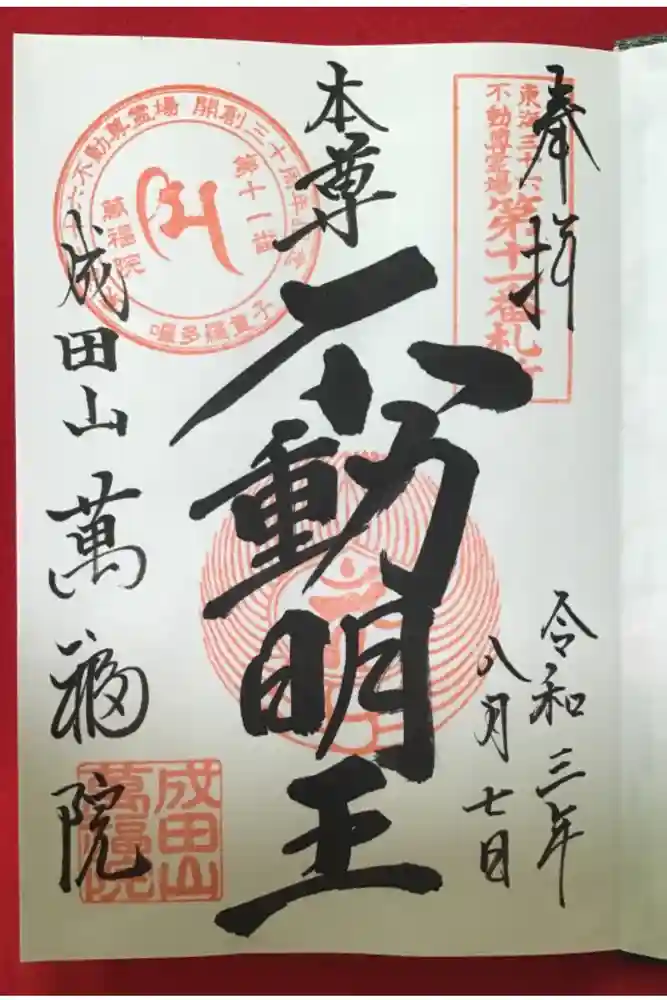 奉拝
東海三十六
不動尊霊場
第十一番札所
令和三年
八月七日
本尊
不動明王
不動尊霊場 開創三十周年
第十一番
萬福院
喔多羅童子
成田山 萬福院
成田山
萬福院